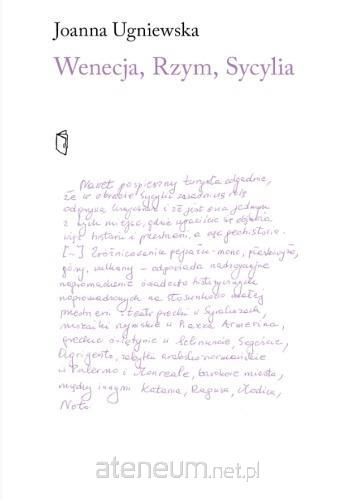 Joanna Ugniewska
Wenecja, Rzym, Sycylia
Nawet pospieszny turysta odgadnie,
że w obrazie Sycylii zasadniczą rolę
odgrywa krajobraz i że jest ona jednym
z tych miejsc, gdzie wyraziście się objawia
więź historii i przestrzeni, a więc geohistoria.
[...] Zróżnicowaniu pejzażu - morze, płaskowyże,
góry, wulkany - odpowiada nadzwyczajne
nagromadzenie osadów historycznych
nagromadzonych na stosunkowo małej
przestrzeni: teatr grecki w Syrakuzach,
mozaiki rzymskie w Piazza Armerina,
greckie świątynie w Selinuncie, Segeście,
Agrigento, zabytki arabsko-normańskie
w Palermo i Monreale, barokowe miasta,
między innymi Katania, Ragusa, Modica,
Noto.
ateneum.net.pl